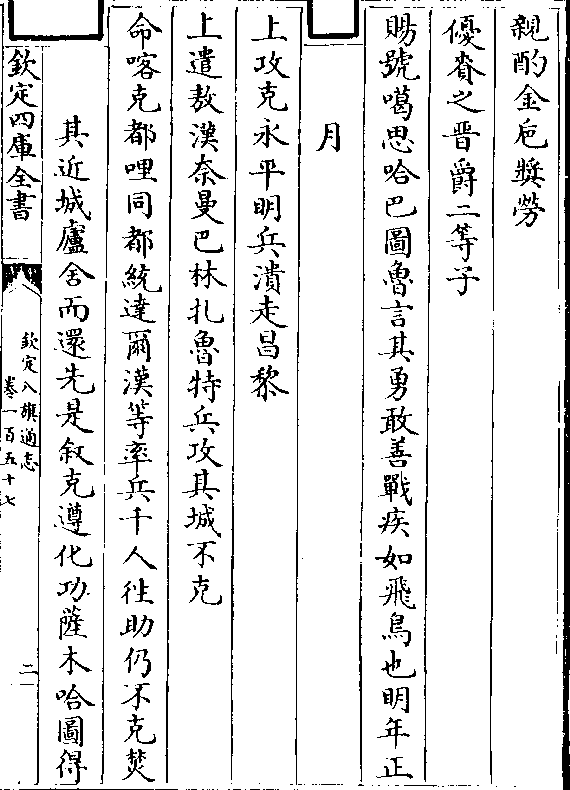 親酌金卮獎勞
優賚之晉爵二等子
賜號噶思哈巴圖魯言其勇敢善戰疾如飛鳥也明年正
月
上攻克永平明兵潰走昌黎
上遣敖漢奈曼巴林扎魯特兵攻其城不克
命喀克都哩同都統達爾漢等率兵千人徃助仍不克焚
其近城廬舍而還先是敘克遵化功薩木哈圖得
欽定四庫全書
欽定八旗通志
卷一百五十七
二